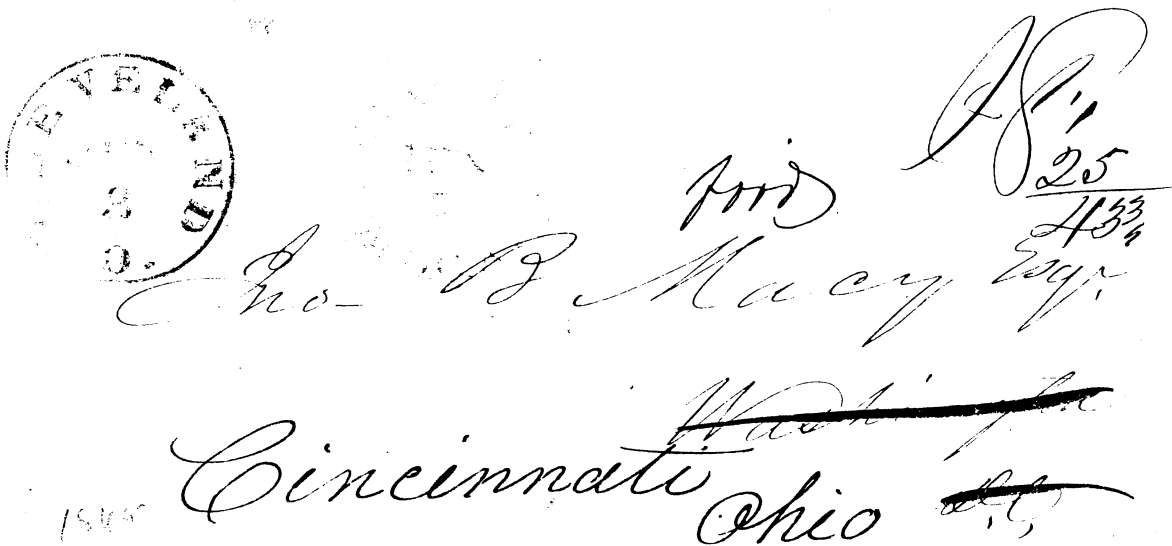 EVELAND
8
O.
25
ford
Jno B Macy Esqr.
Washington
Cincinnati
Ohio D.C,
1845